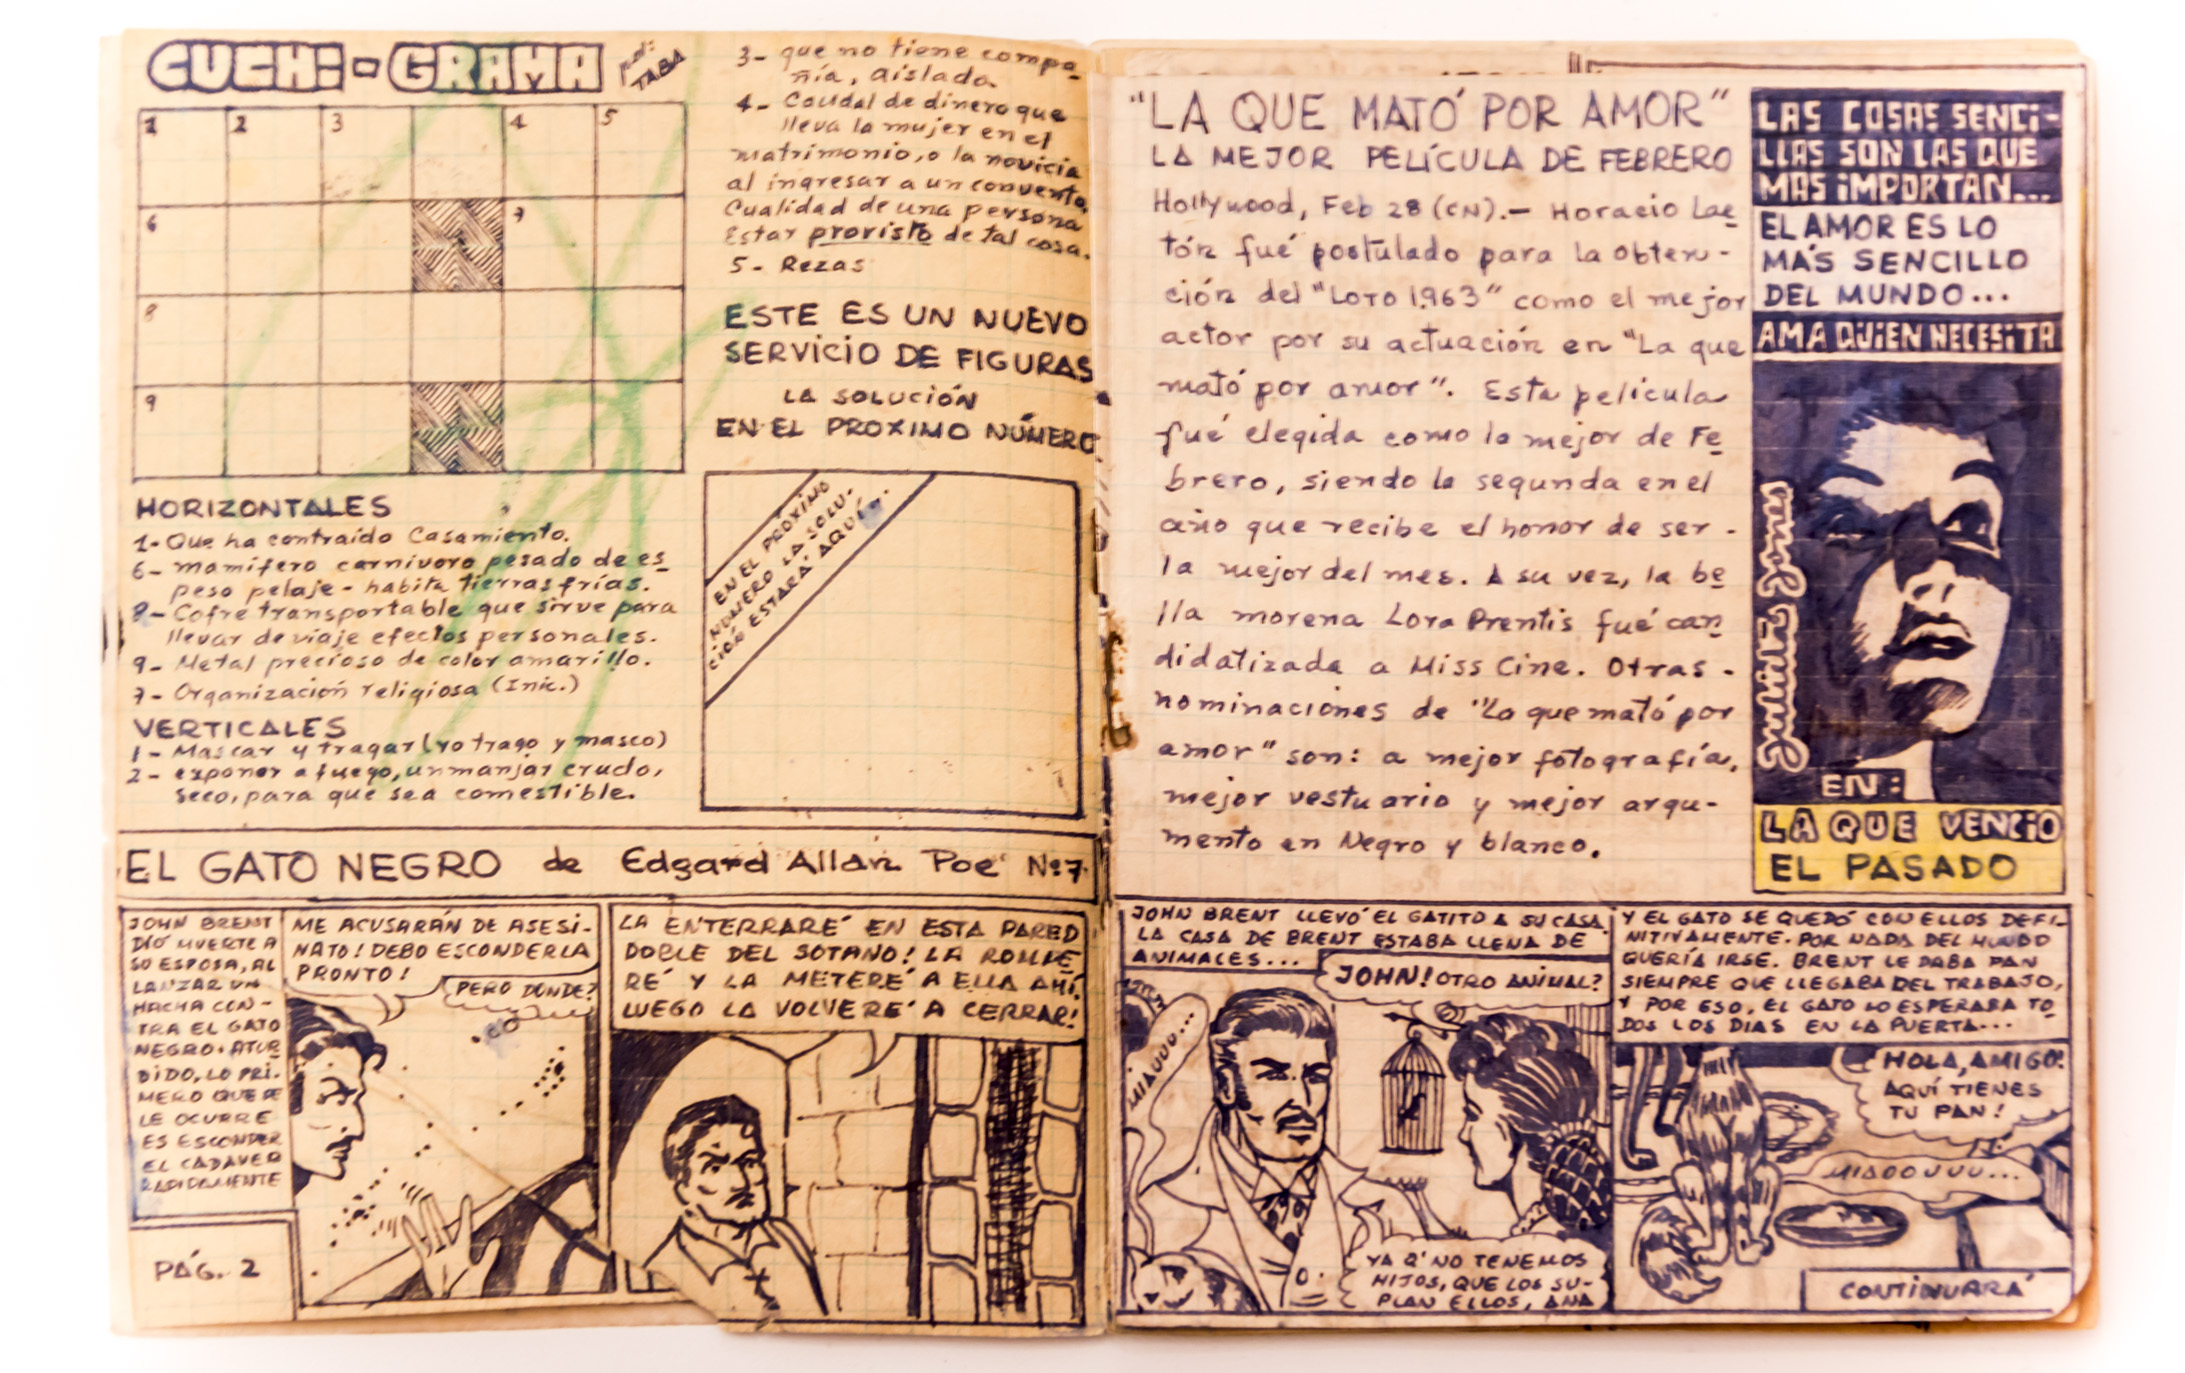 CUCHI-GRAMA
por: TABA
1 2 3 4 5
6 7
8
9
HORIZONTALES
1- Que ha contraído Casamiento.
6- mamífero carnivoro pesado de es
peso pelaje - habita tierras frías.
8- Cofre transportable que sirve para
llevar de viaje efectos personales.
9- Metal precioso de color amarillo.
7- Organización religiosa (Inic.)
VERTICALES
1- Mascar y tragar (yo trago y masco)
2- exponer a fuego, un manjar crudo,
seco, para que sea comestible.
3- que no tiene compa-
ñía, aislada.
4- Caudal de dinero que
lleva la mujer en el
matrimonio, o la novicia
al ingresar a un convento.
Cualidad de una persona
Estar provisto de tal cosa.
5- Rezas
ESTE ES UN NUEVO
SERVICIO DE FIGURAS
LA SOLUCIÓN
EN EL PROXIMO NÚMERO
EN EL PRÓXIMO
NÚMERO LA SOLU-
CIÓN ESTARÁ AQUÍ.
EL GATO NEGRO de Edgard Allan Poe Nº 7
JOHN BRENT
DIÓ MUERTE A
SU ESPOSA, AL
LANZAR UN
HACHA CON-
TRA EL GATO
NEGRO. ATUR
DIDO, LO PRI-
MERO QUE SE
LE OCURRE
ES ESCONDER
EL CADAVER
RAPIDAMENTE
PÁG. 2
ME ACUSARÁN DE ASESI-
NATO! DEBO ESCONDERLA
PRONTO!
PERO DÓNDE?
LA ENTERRARÉ EN ESTA PARED
DOBLE DEL SOTANO! LA ROMPE
RÉ Y LA METERÉ A ELLA AHÍ.
LUEGO LA VOLVERÉ A CERRAR!
"LA QUE MATÓ POR AMOR"
LA MEJOR PELÍCULA DE FEBRERO
Hollywood, Feb 28 (CN).- Horacio Lae
tón fué postulado para la obten-
ción del "Loto 1.963" como el mejor
actor por su actuación en "La que
mató por amor". Esta película
fué elegida como la mejor de Fe
brero, siendo la segunda en el
año que recibe el honor de ser -
la mejor del mes. A su vez, la be
lla morena Lora Prentis fué can
didatizada a Miss Cine. Otras -
nominaciones de "La que mató por
amor" son: a mejor fotografía,
mejor vestuario y mejor argu-
mento en Negro y blanco.
LAS COSAS SENCI-
LLAS SON LAS QUE
MAS IMPORTAN...
EL AMOR ES LO
MÁS SENCILLO
DEL MUNDO...
AMA QUIEN NECESITA
Julieta Jones
EN:
LA QUE VENCIO
EL PASADO
JOHN BRENT LLEVÓ EL GATITO A SU CASA.
LA CASA DE BRENT ESTABA LLENA DE
ANIMALES...
MIAUUU...
JOHN! OTRO ANIMAL?
YA Q' NO TENEMOS
HIJOS, QUE LOS SU-
PLAN ELLOS, ANA
Y EL GATO SE QUEDÓ CON ELLOS DEFI-
NITIVAMENTE. POR NADA DEL MUNDO
QUERÍA IRSE. BRENT LE DABA PAN
SIEMPRE QUE LLEGABA DEL TRABAJO,
Y POR ESO, EL GATO LO ESPERABA TO
DOS LOS DIAS EN LA PUERTA...
HOLA, AMIGO!
AQUÍ TIENES
TU PAN!
MIAOOUUU...
CONTINUARÁ